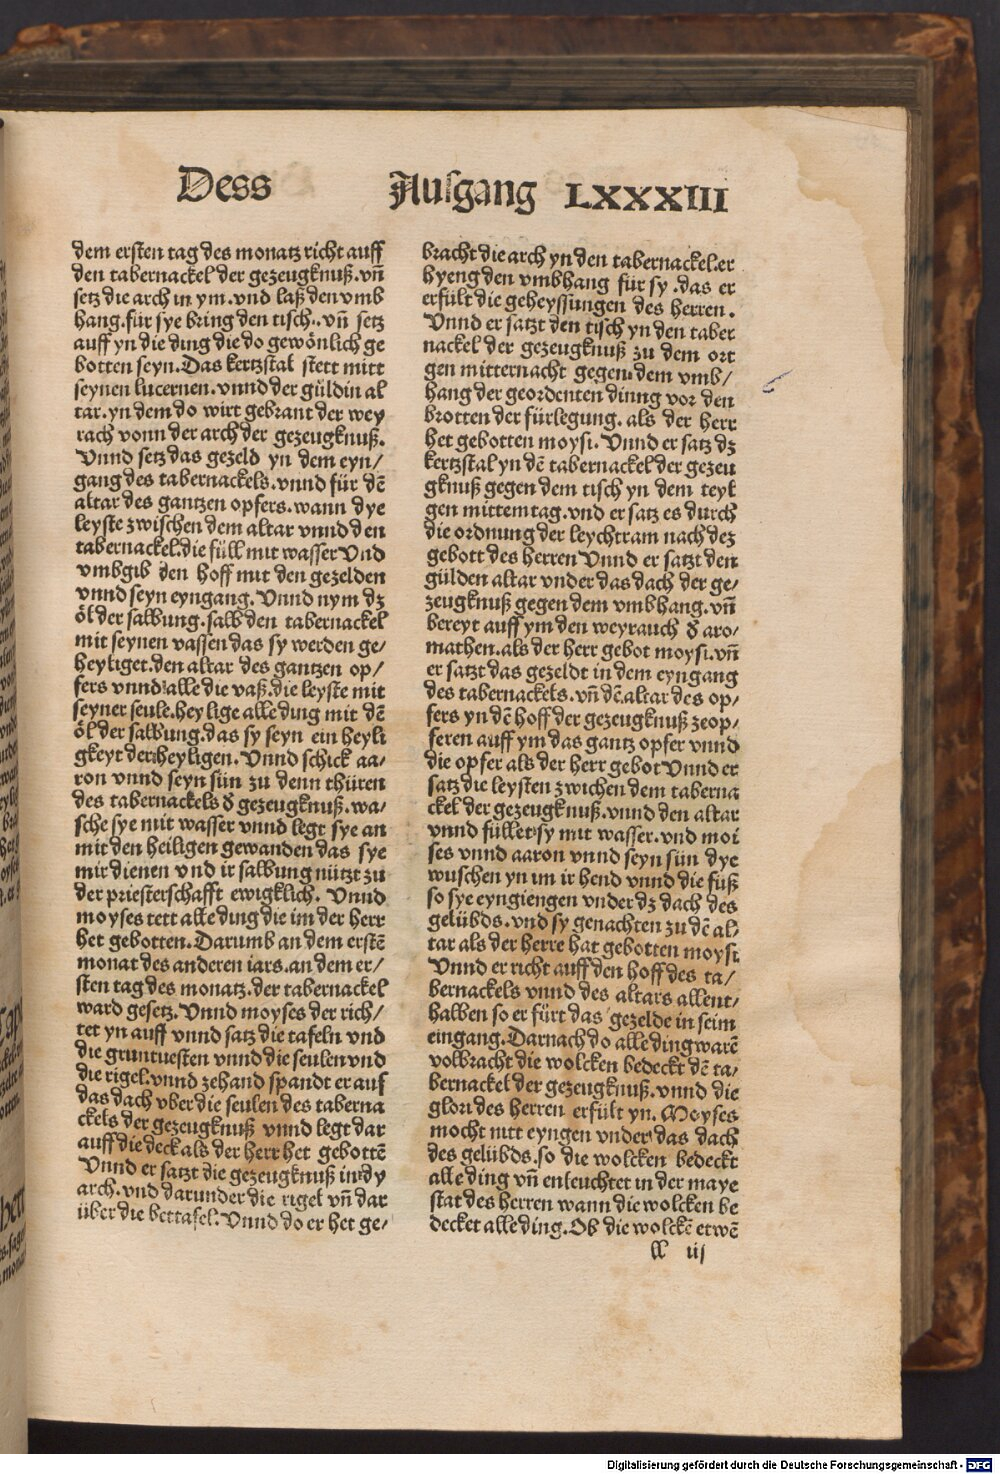 Dess Ausgang LXXXIII
dem ersten tag des monatz richt auff
den tabernackel der gezeugknuß.vñ
setz die arch in ym.vnd laß den vmb
hang.für sye bring den tisch..vñ setz
auff yn die ding die do gewönlich ge
botten seyn.Das kertzstal stett mitt
seynen lucernen.vnnd der güldin al
tar.yn dem do wirt gebrant der wey
rach vonn der arch der gezeugknuß.
Vnnd setz das gezeld yn dem eyn/
gang des tabernackels.vnnd für dē
altar des gantzen opfers.wann dye
leyste zwischen dem altar vnnd den
tabernackel.die füll mit wasser Vnd
vmbgib den hoff mit den gezelden
vnnd seyn eyngang.Vnnd nym dz
öl der salbung.salb den tabernackel
mit seynen vassen das sy werden ge/
heyliget.den altar des gantzen op/
fers vnnd alle die vaß.die leyste mit
seyner seule.heylige alle ding mit dē
öl der salbung.das sy seyn ein heyli
gkeyt der heyligen.Vnnd schick aa/
ron vnnd seyn sün zu denn thüren
des tabernackels d gezeugknuß.wa/
sche sye mit wasser vnnd legt sye an
mit den heiligen gewanden das sye
mir dienen vnd ir salbung nützt zu
der priesterschafft ewigklich. Vnnd
moyses tett alle ding die im der herr
het gebotten.Darumb an dem erstē
monat des anderen iars.an dem er/
sten tag des monatz.der tabernackel
ward gesetz.Vnnd moyses der rich/
tet yn auff vnnd satz die tafeln vnd
die gruntuesten vnnd die seulen vnd
die rigel.vnnd zehand spandt er auf
das dach vber die seulen des taberna
ckels der gezeugknuß vnnd legt dar
auff die deck als der herr het gebottē
Vnnd er satzt die gezeugknuß in dy
arch.vnd darunder die rigel vñ dar
über die bettafel.Vnnd do er het ge/
bracht die arch yn den tabernackel.er
hyeng den vmbhang für sy.das er
erfült die geheyssungen des herren.
Vnnd er satzt den tisch yn den taber
nackel der gezeugknuß zu dem ort
gen mitternacht gegen dem vmb/
hang der geordenten dinng vor den
brotten der fürlegung.als der herr
het gebotten moysi.Vnnd er satz dz
kertzstal yn dē tabernackel der gezeu
gknuß gegen dem tisch yn dem teyl
gen mittemtag.vnd er satz es durch
die ordnung der leychtram nach dez
gebott des herren Vnnd er satzt den
gülden altar vnder das dach der ge/
zeugknuß gegen dem vmbhang.vñ
bereyt auff ym den weyrauch d aro/
mathen.als der herr gebot moysi.vñ
er satzt das gezeldt in dem eyngang
des tabernackels.vñ dē altar des op/
fers yn dē hoff der gezeugknuß zeop/
feren auff ym das gantz opfer vnnd
die opfer als der herr gebot Vnnd er
satz die leysten zwichen dem taberna
ckel der gezeugknuß.vnnd den altar
vnnd füllet sy mit wasser.vnd moi
ses vnnd aaron vnnd seyn sün dye
wuschen yn im ir hend vnnd die füß
so sye eyngiengen vnder dz dach des
gelübds.vnd sy genachten zu dē al/
tar als der herre hat gebotten moysi.
Vnnd er richt auff den hoff des ta/
bernackels vnnd des altars allent/
halben so er fürt das gezelde in seim
eingang.Darnach do alle ding warē
volbracht die wolcken bedeckt dē ta/
bernackel der gezeugknuß.vnnd die
glori des herren erfült yn.Moyses
mocht nitt eyngen vnder das dach
des gelübds.so die wolcken bedeckt
alle ding vñ enleuchtet in der maye
stat des herren wann die wolcken be
decket alle ding.Ob die wolckē etwē
ll iij
Digitalisierung gefördert durch die Deutsche Forschungsgemeinschaft - DFG